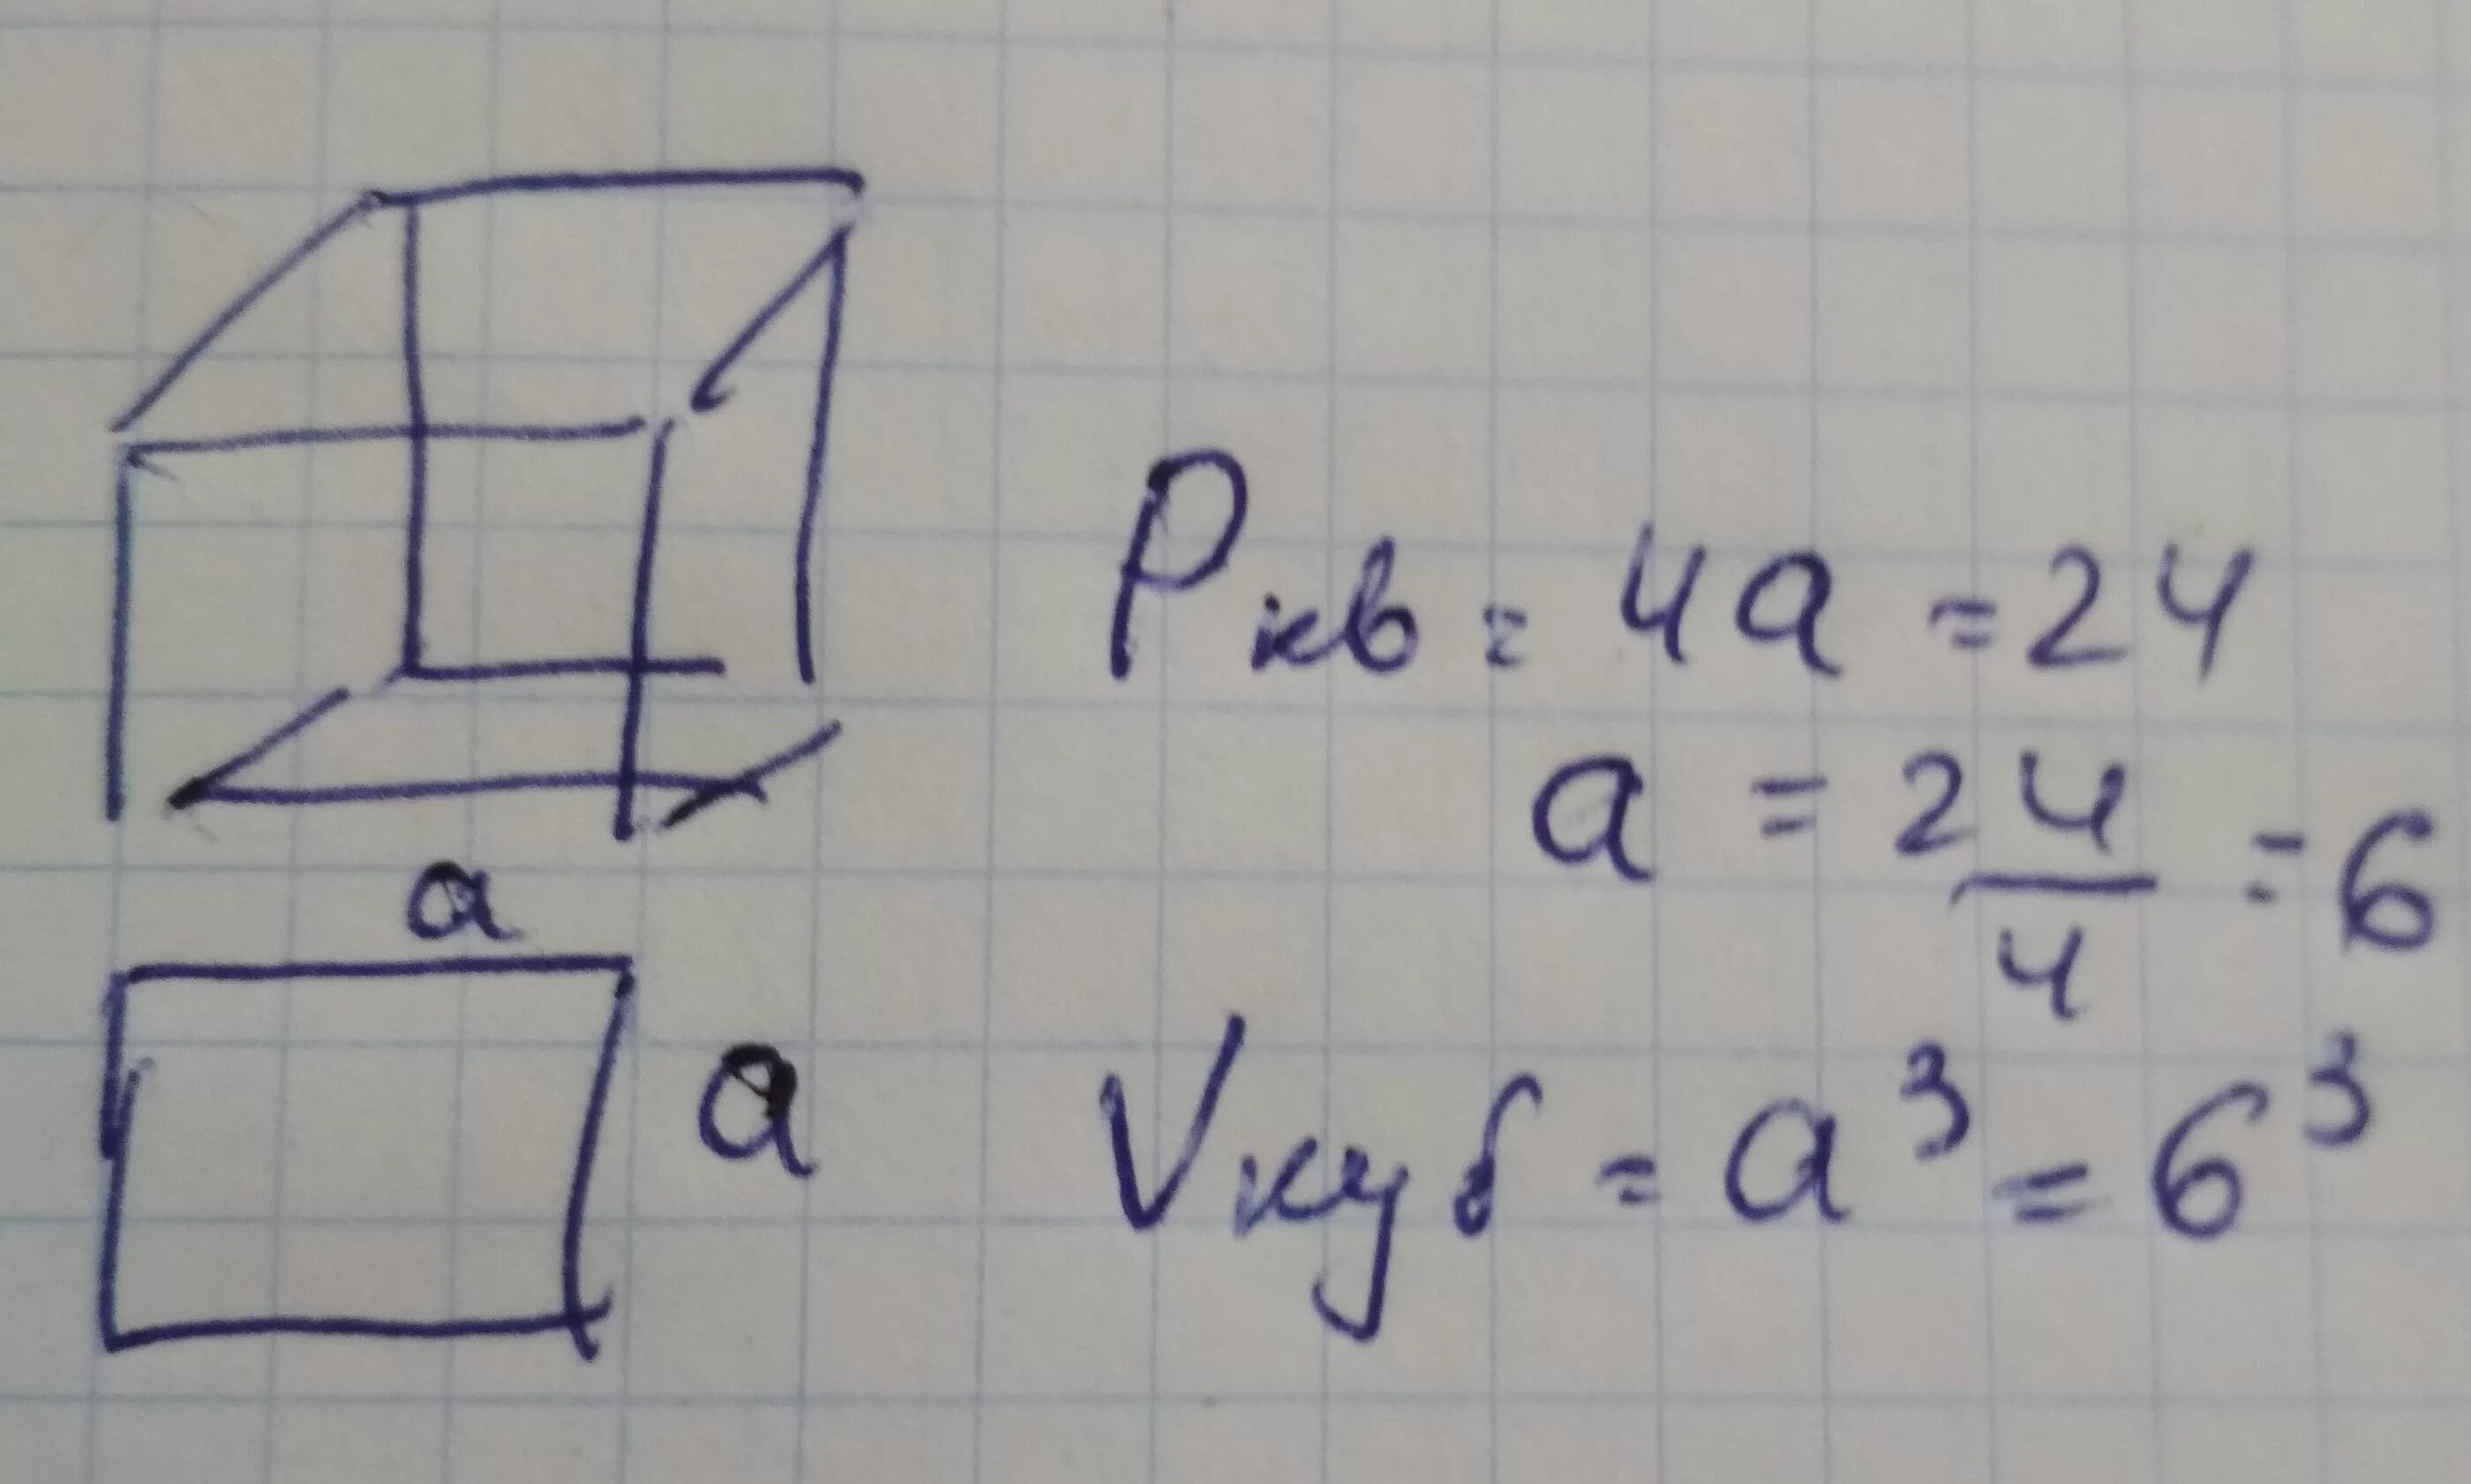 a
a
Pкв = 4a = 24
a = 24/4 = 6
Vкуб = a³ = 6³